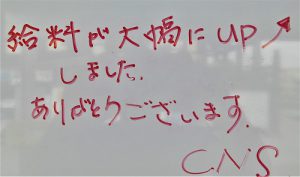 給料が大幅にUP↗
しました.
ありがとうございます.
C.N'S